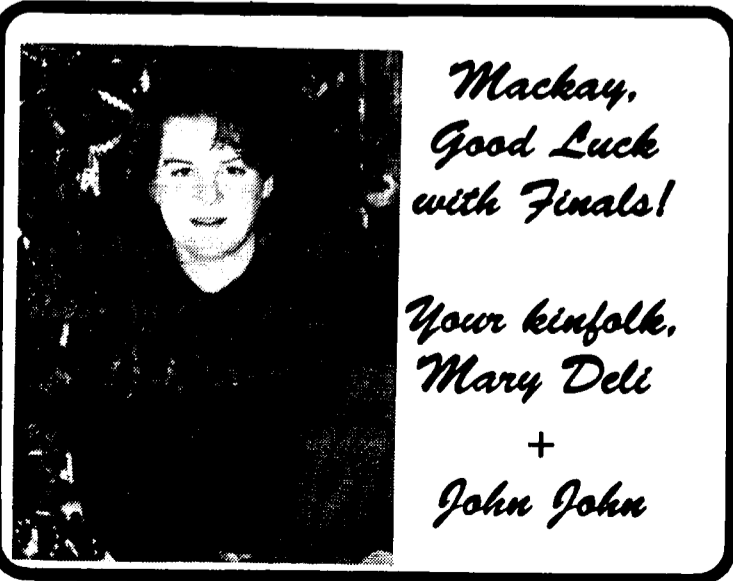 Mackay,
Good Luck
with Finals!
Your kinfolk,
Mary Deli
+
John John